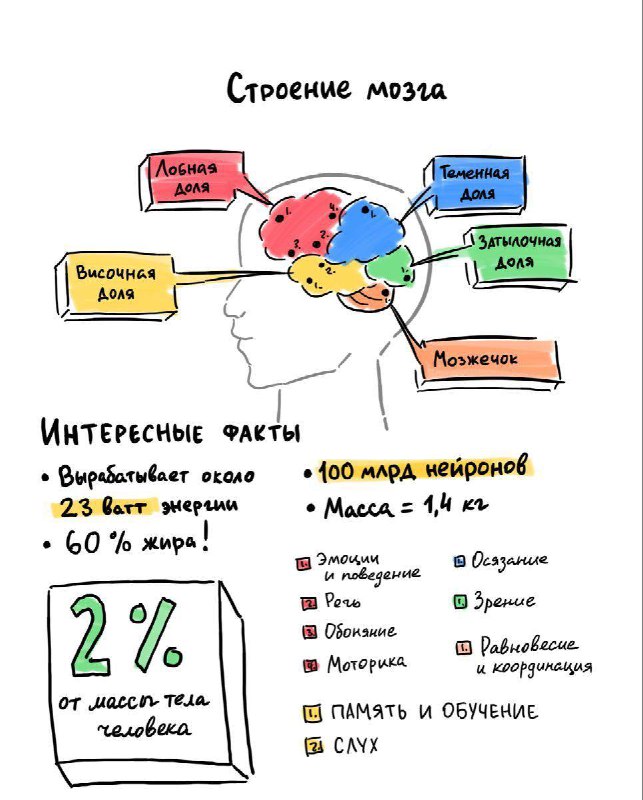 Строение мозга
Лобная
доля
Теменная
доля
1.
4.
1.
2.
3.
Затылочная
доля
1.
2.
1.
1.
Височная
доля
Мозжечок
Интересные факты
• Вырабатывает около
23 ватт энергии
• 60% жира!
• 100 млрд нейронов
• Масса = 1,4 кг
2%
от массы тела
человека
1. Эмоции
и поведение
2. Речь
3. Обоняние
4. Моторика
1. Осязание
1. Зрение
1. Равновесие
и координация
1. Память и обучение
2. Слух